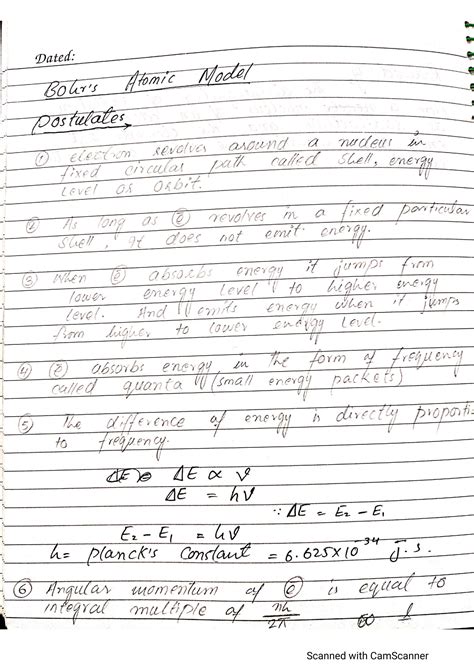 Dated:
Bohr's Atomic Model
Postulates
① election revolves around a nucleus in
fixed circular path called shell, energy
level or orbit.
② As long as ⓔ revolves in a fixed particular
shell, it does not emit energy.
③ When ⓔ absorbs energy it jumps from
lower energy level to higher energy
level. And emits energy when it jumps
from higher to lower energy level.
④ ⓔ absorbs energy in the form of frequency
called quanta (small energy packets)
⑤ The difference of energy is directly proporti
to frequency.
ΔE ∝ ν
ΔE = hν
∵ ΔE = E₂ - E₁
E₂ - E₁ = hν
h = planck's constant = 6.625x10⁻³⁴ j.s.
⑥ Angular momentum of ⓔ is equal to
integral multiple of nh/2π
Scanned with CamScanner